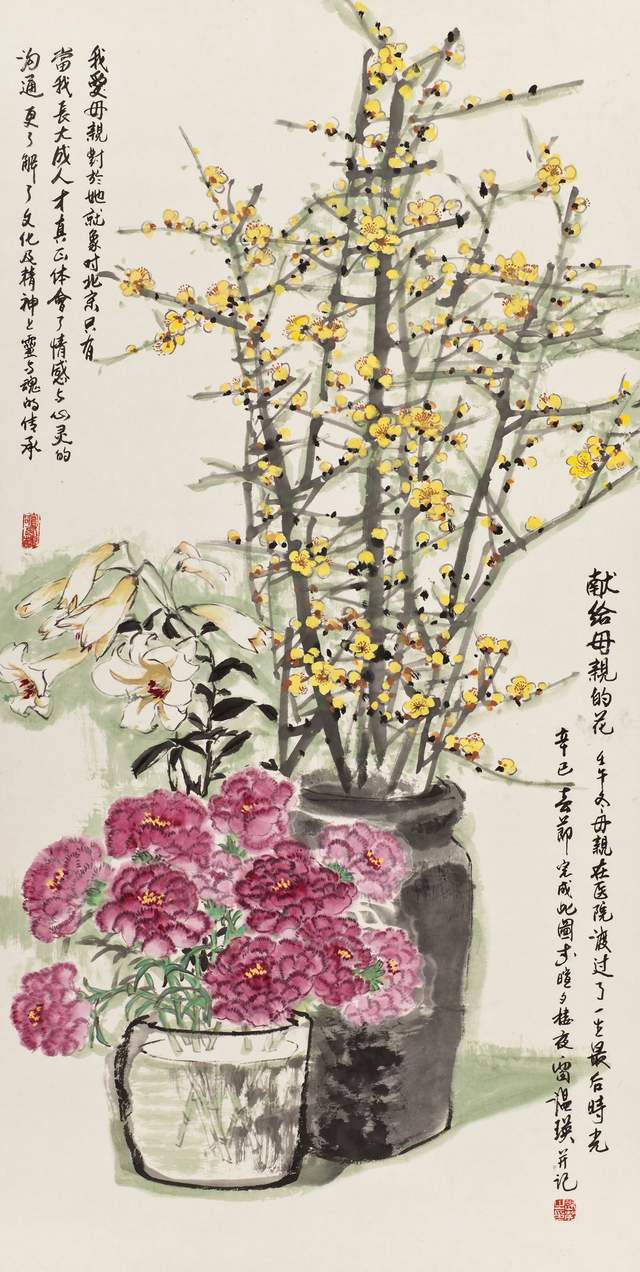 献给母親的花
壬午冬母親在医院渡过了一生最后時光
辛巳春節完成此圖 夜 溫瑛并记
我愛母親對於她就象对北京只有
當我長大成人才真正体會了情感与心灵的
沟通更了解了文化及精神上靈与魂的传承